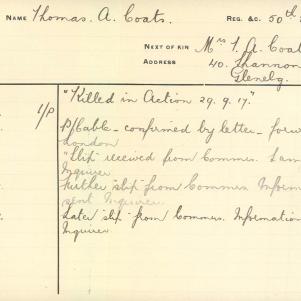 NAME Thomas. A. Coats. REG. &C. 50th
NEXT OF KIN Mrs T. A. Coat
ADDRESS 40. Shannon
Glenelg.
"Killed in Action 29. 9. 17."
1/P P/Cable - confirmed by letter - forw
London
"Slip" received from Commrs.
Inquirer
Further "slip" from Commrs Inform
sent Inquirer.
Later slip from Commrs. Information
Inquirer